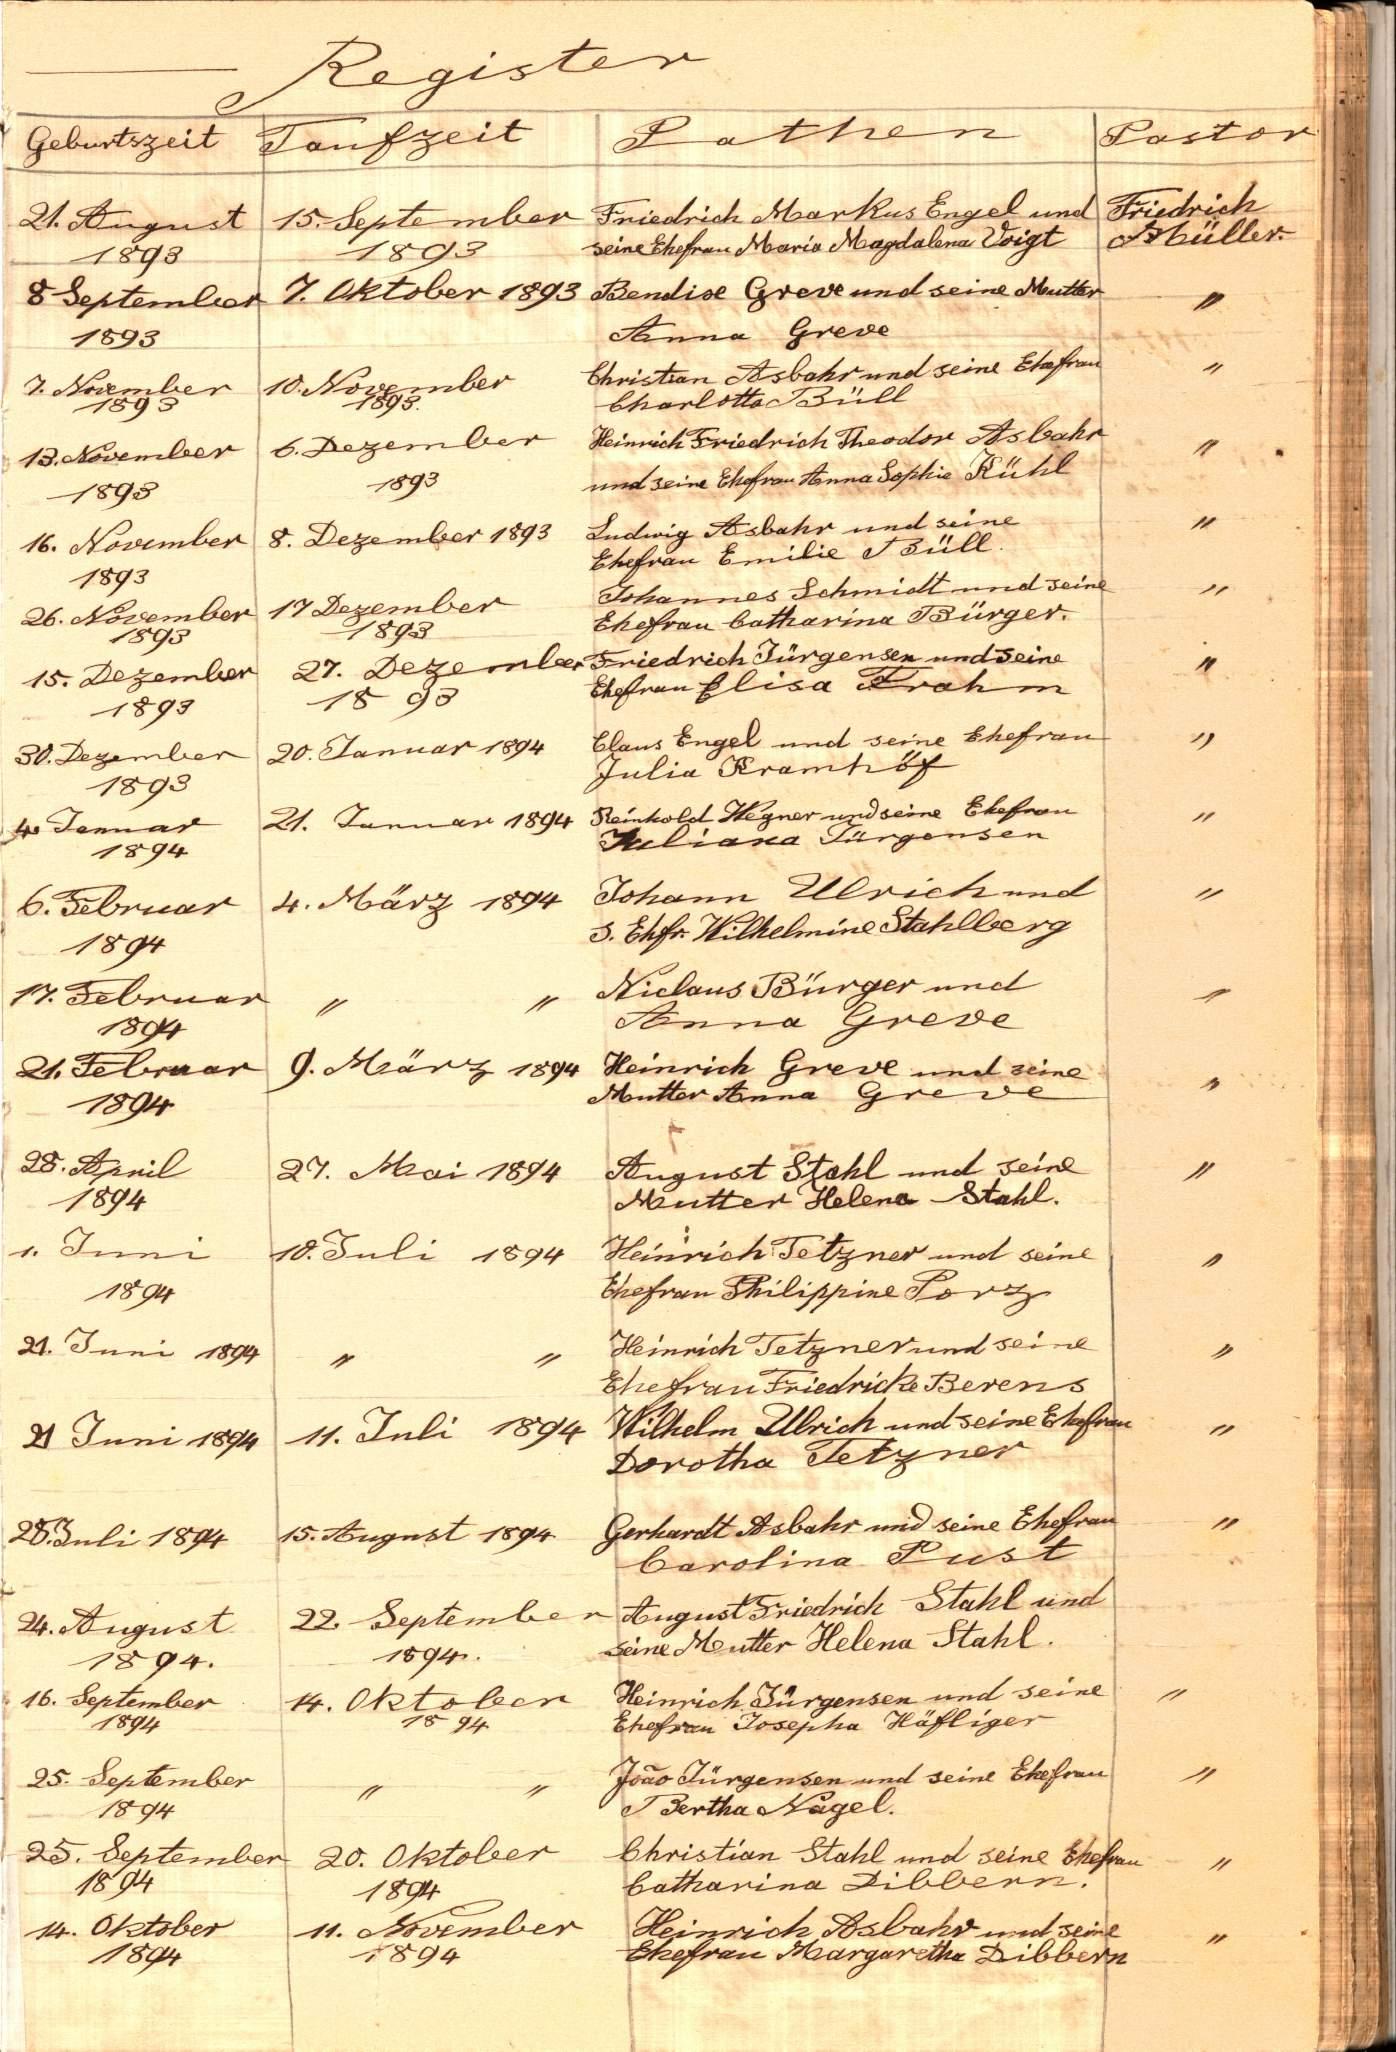 Register
Geburtszeit Taufzeit Pathen Pastor
21. August 15. September Friedrich Markus Engel und Friedrich
1893 1893 seine Ehefrau Maria Magdalena Voigt Müller.
8 September 7. Oktober 1893 Bendise Greve und seine Mutter "
1893 Anna Greve
7. November 10. November Christian Asbahr und seine Ehefrau "
1893 1893. Charlotta Büll
13. November 6. Dezember Heinrich Friedrich Theodor Asbahr "
1893 1893 und seine Ehefrau Anna Sophie Kühl
16. November 8. Dezember 1893 Ludwig Asbahr und seine "
1893 Ehefrau Emilie Büll.
26. November 17 Dezember Johannes Schmidt und seine "
1893 1893 Ehefrau Catharina Bürger.
15. Dezember 27. Dezember Friedrich Jürgensen und seine "
1893 1893 Ehefrau Elisa Frahm
30. Dezember 20. Januar 1894 Claus Engel und seine Ehefrau "
1893 Julia Kramhöf
4. Januar 21. Januar 1894 Reinhold Wegner und seine Ehefrau "
1894 Juliana Jürgensen
6. Februar 4. März 1894 Johann Ulrich und "
1894 s. Ehfr. Wilhelmine Stahlberg
17. Februar " " Niclaus Bürger und "
1894 Anna Greve
21. Februar 9. März 1894 Heinrich Greve und seine "
1894 Mutter Anna Greve
28. April 27. Mai 1894 August Stahl und seine "
1894 Mutter Helena Stahl.
1. Juni 10. Juli 1894 Heinrich Tetzner und seine "
1894 Ehefrau Philippine Porz
21. Juni 1894 " " Heinrich Tetzner und seine "
Ehefrau Friedricke Berens
21 Juni 1894 11. Juli 1894 Wilhelm Ulrich und seine Ehefrau "
Dorotha Tetzner
28. Juli 1894 15. August 1894 Gerhardt Asbahr und seine Ehefrau "
Carolina Pust
24. August 22. September August Friedrich Stahl und
1894. 1894. seine Mutter Helena Stahl.
16. September 14. Oktober Heinrich Jürgensen und seine "
1894 1894 Ehefrau Josepha Häfliger
25. September " " João Jürgensen und seine Ehefrau "
1894 Bertha Nagel.
25. September 20. Oktober Christian Stahl und seine Ehefrau "
1894 1894 Catharina Dibbern.
14. Oktober 11. November Heinrich Asbahr und seine "
1894 1894 Ehefrau Margaretha Dibbern